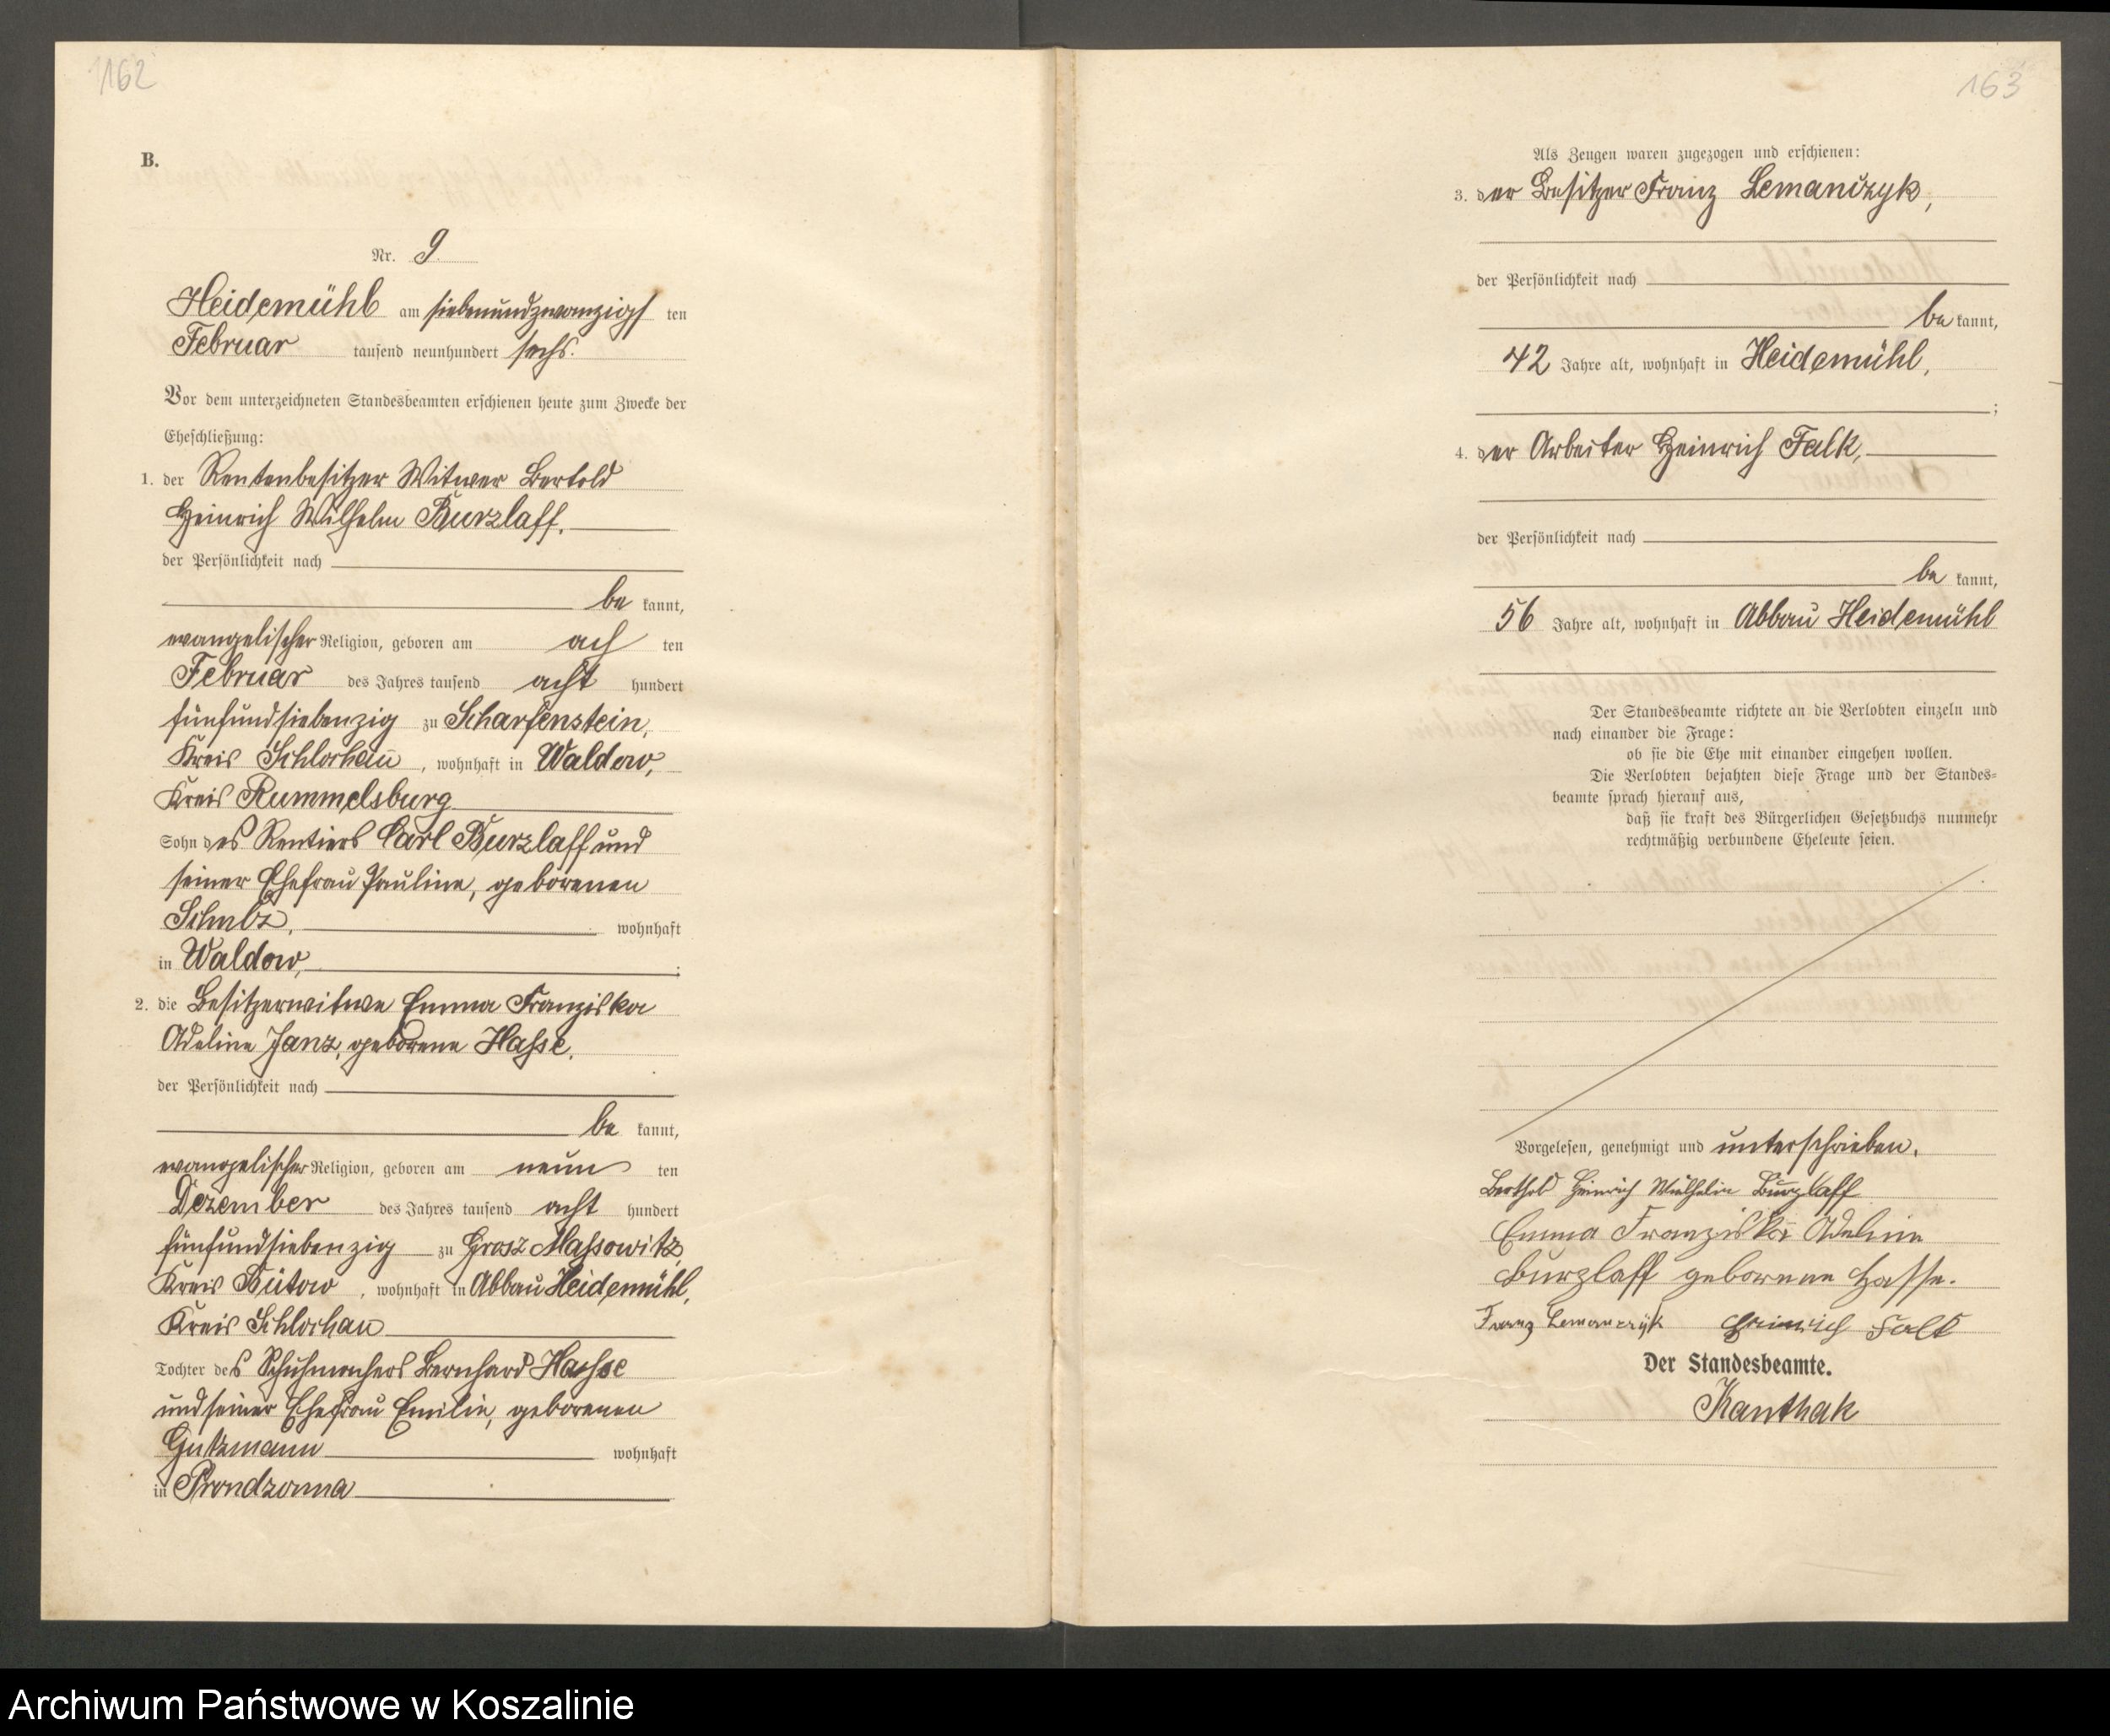 162
B.
Nr. 9.
Heidemühl am siebenundzwanzigsten
Februar tausend neunhundert sechs.
Vor dem unterzeichneten Standesbeamten erschienen heute zum Zwecke der
Eheschließung:
1. der Rentenbesitzer Witwer Bertold
Heinrich Wilhelm Burzlaff,
der Persönlichkeit nach
be kannt,
evangelischer Religion, geboren am ach ten
Februar des Jahres tausend acht hundert
fünfundsiebenzig zu Scharfenstein,
Kreis Schlochau, wohnhaft in Waldow,
Kreis Rummelsburg
Sohn des Rentiers Carl Burzlaff und
seiner Ehefrau Pauline, geborenen
Schulz, wohnhaft
in Waldow, ;
2. die Besitzerwitwe Emma Franziska
Adeline Janz, geborene Hasse,
der Persönlichkeit nach
be kannt,
evangelischer Religion, geboren am neun ten
Dezember des Jahres tausend acht hundert
fünfundsiebenzig zu Grosz Massowitz,
Kreis Bütow, wohnhaft in Abbau Heidemühl,
Kreis Schlochau
Tochter des Schuhmachers Bernhard Hasse
und seiner Ehefrau Emilie, geborenen
Gutzmann wohnhaft
in Prondzonna
163
Als Zeugen waren zugezogen und erschienen:
3. der Besitzer Franz Lemanczyk,
der Persönlichkeit nach
be kannt,
42 Jahre alt, wohnhaft in Heidemühl,
;
4. der Arbeiter Heinrich Falk,
der Persönlichkeit nach
be kannt,
56 Jahre alt, wohnhaft in Abbau Heidemühl
Der Standesbeamte richtete an die Verlobten einzeln und
nach einander die Frage:
ob sie die Ehe mit einander eingehen wollen.
Die Verlobten bejahten diese Frage und der Standes-
beamte sprach hierauf aus,
daß sie kraft des Bürgerlichen Gesetzbuchs nunmehr
rechtmäßig verbundene Eheleute seien.
Vorgelesen, genehmigt und unterschrieben.
Berthold Heinrich Wilhelm Burzlaff
Emma Franziska Adeline
Burzlaff geborene Hasse.
Franz Lemanczyk Heinrich Falk
Der Standesbeamte.
Kanthak
Archiwum Państwowe w Koszalinie